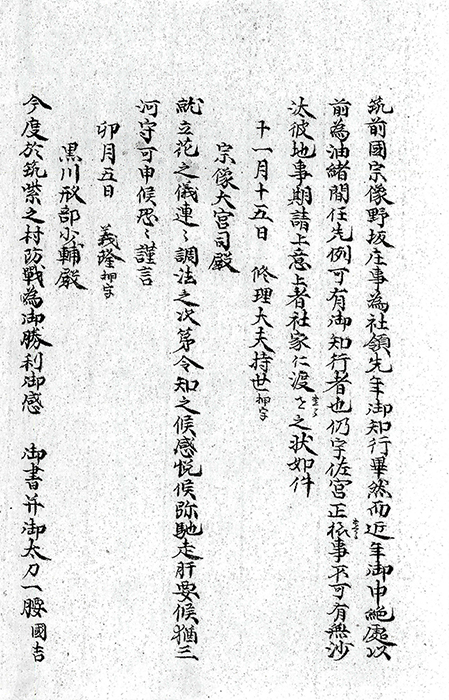 筑前國宗像野坂庄事為社領先年御知行畢然而近年御中絶處以
前為油緒間任先例可有御知行者也仍宇佐宮正事不可有無沙
汰彼地事期請上意上者社家仁渡之状如件
十一月十五日 修理大夫持世押字
宗像大宮司殿
就立花之儀連々調法之次第令知之候感悦候弥馳走肝要候猶三
河守可申候恐々謹言
卯月五日 義隆押字
黒川刑部少輔殿
今度於筑紫之村防戦為御勝利御感 御書并御太刀一腰國吉